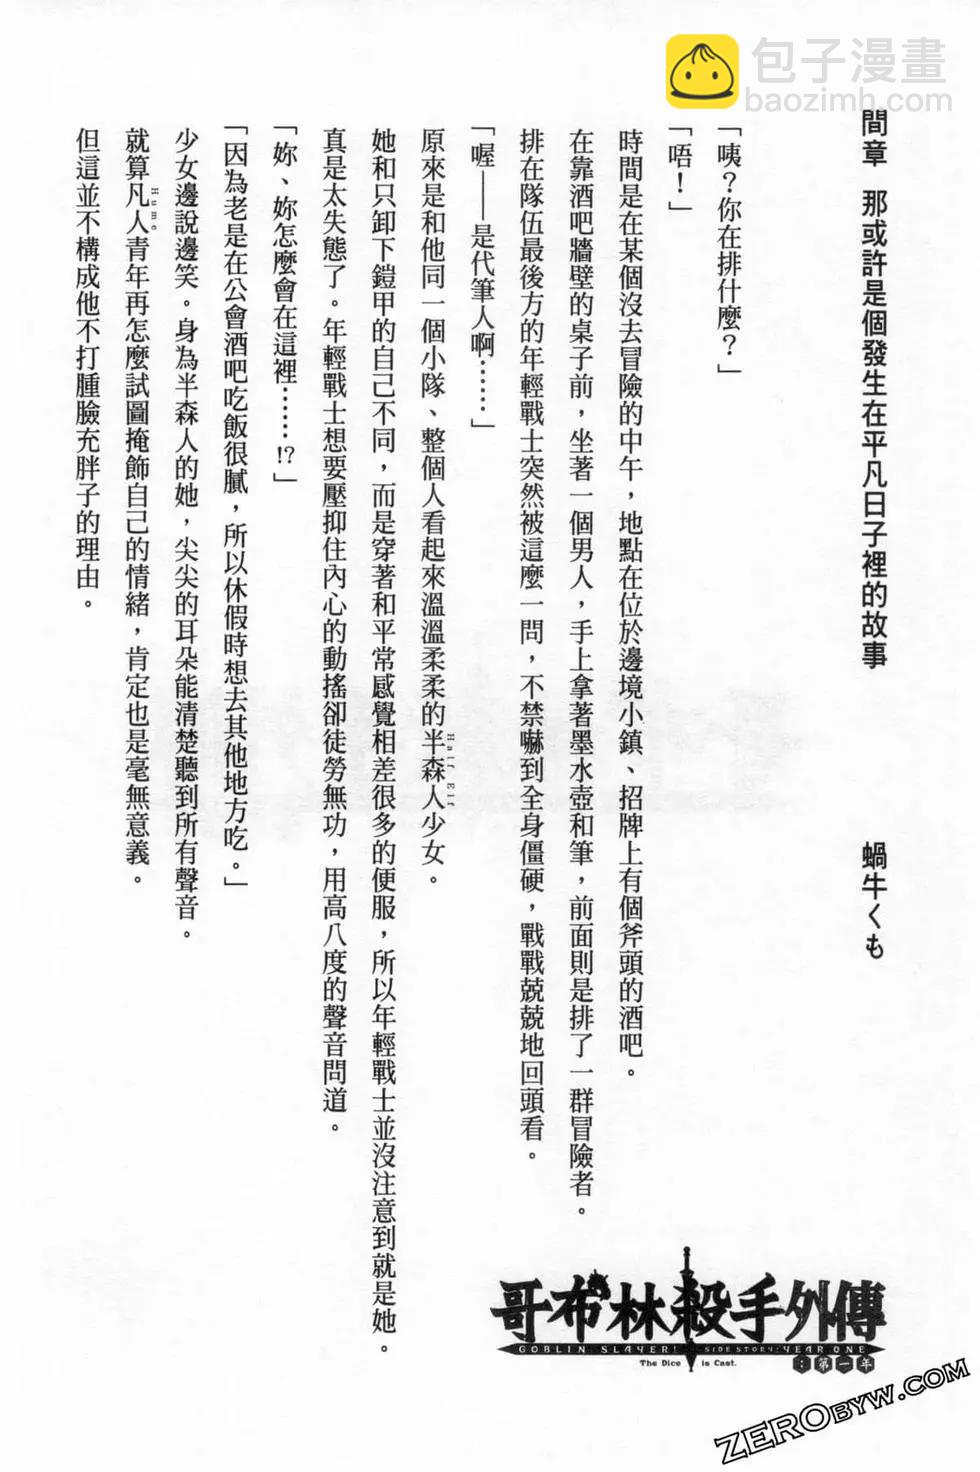 包子漫畫
baozimh.com
間章 那或許是個發生在平凡日子裡的故事 蝸牛くも
「咦？你在排什麼？」
「唔！」
時間是在某個沒去冒險的中午，地點在位於邊境小鎮、招牌上有個斧頭的酒吧。
在靠酒吧牆壁的桌子前，坐著一個男人，手上拿著墨水壺和筆，前面則是排了一群冒險者。
排在隊伍最後方的年輕戰士突然被這麼一問，不禁嚇到全身僵硬，戰戰兢兢地回頭看。
「喔——是代筆人啊……」
原來是和他同一個小隊、整個人看起來溫溫柔柔的半森人少女。
Half Elf
她和只卸下鎧甲的自己不同，而是穿著和平常感覺相差很多的便服，所以年輕戰士並沒注意到就是她。
真是太失態了。年輕戰士想要壓抑住內心的動搖卻徒勞無功，用高八度的聲音問道。
「妳、妳怎麼會在這裡……!?」
「因為老是在公會酒吧吃飯很膩，所以休假時想去其他地方吃。」
少女邊說邊笑。身為半森人的她，尖尖的耳朵能清楚聽到所有聲音。
就算凡人青年再怎麼試圖掩飾自己的情緒，肯定也是毫無意義。
Hume
但這並不構成他不打腫臉充胖子的理由。
哥布林殺手外傳
GOBLIN SLAYER! SIDE STORY: YEAR ONE
The Dice is Cast.
：第一年
ZEROBYW.COM